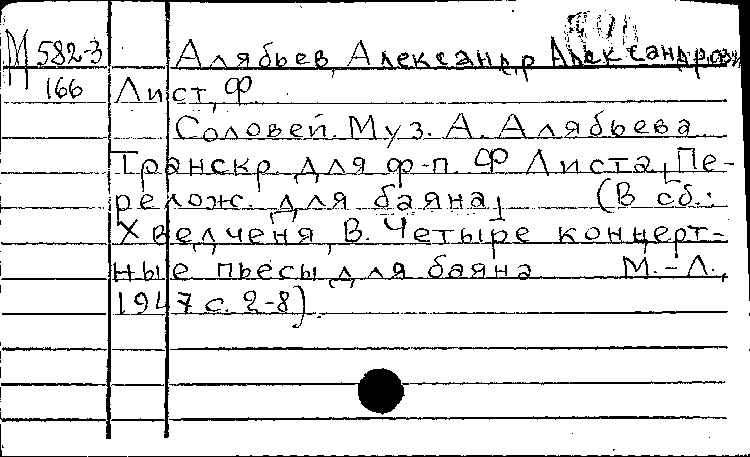 М 582-3 Алябьев, Александр Александрович
166 Лист, Ф.
Соловей. Муз. А. Алябьева.
Транскр. для ф-п. Ф Листа, Пе-
релож. для баяна, (В сб.:
Хведченя, В. Четыре концерт-
ные пьесы для баяна М.-Л.,
1947 с. 2-8).